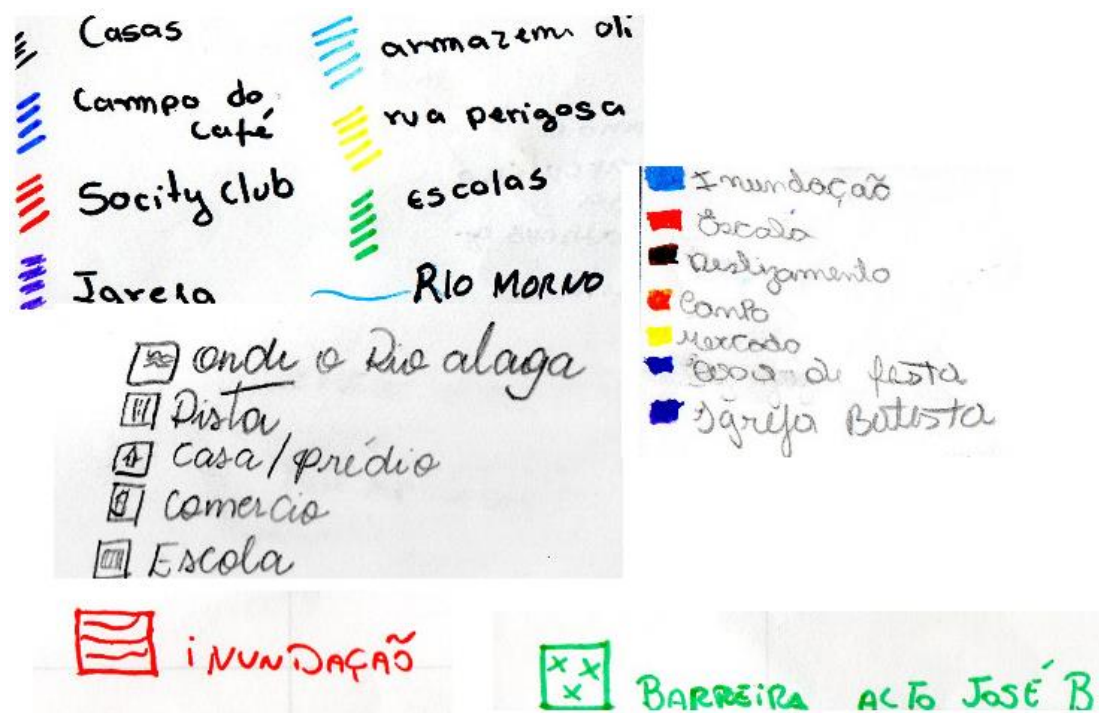 Casas
Campo do
café
Socity club
Igreja
armazem oli
rua perigosa
escolas
RIO MORNO
Inundação
Escola
Deslizamento
Campo
Mercado
de festa
Igreja Batista
onde o Rio alaga
Pista
Casa/prédio
Comercio
Escola
iNUNDAÇAÕ
BARREIRA ACTO JOSÉ B